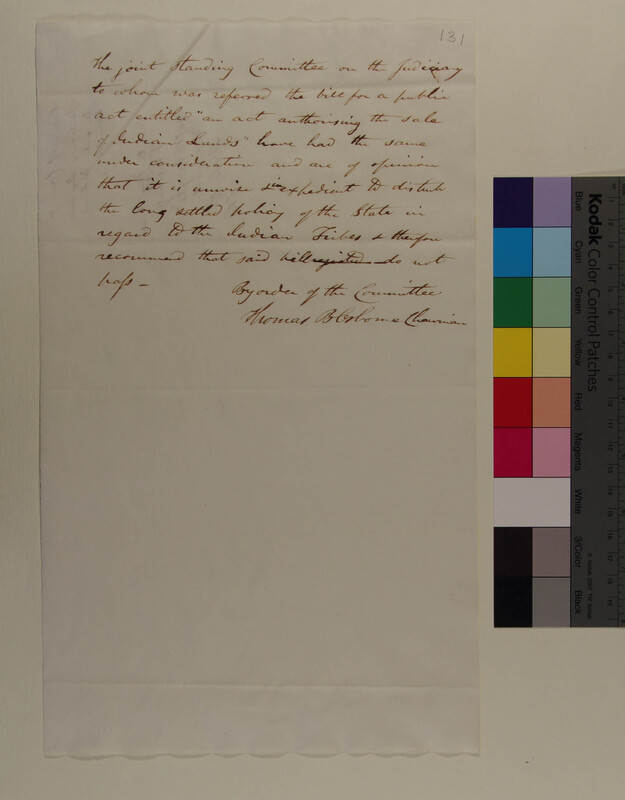 131
The joint standing Committee on the Judiciary
to whom was referred the bill for a public
act entitled "an act authorising the sale
of Indian Lands" have had the same
under consideration and are of opinion
that it is unwise & inexpedient to disturb
the long settled policy of the State in
regard to the Indian Tribes & therefore
recommend that said bill do not
pass -
By order of the Committee
Thomas B Osborne Chairman
Kodak Color Control Patches
Blue
Cyan
Green
Yellow
Red
Magenta
White
3/Color
Black